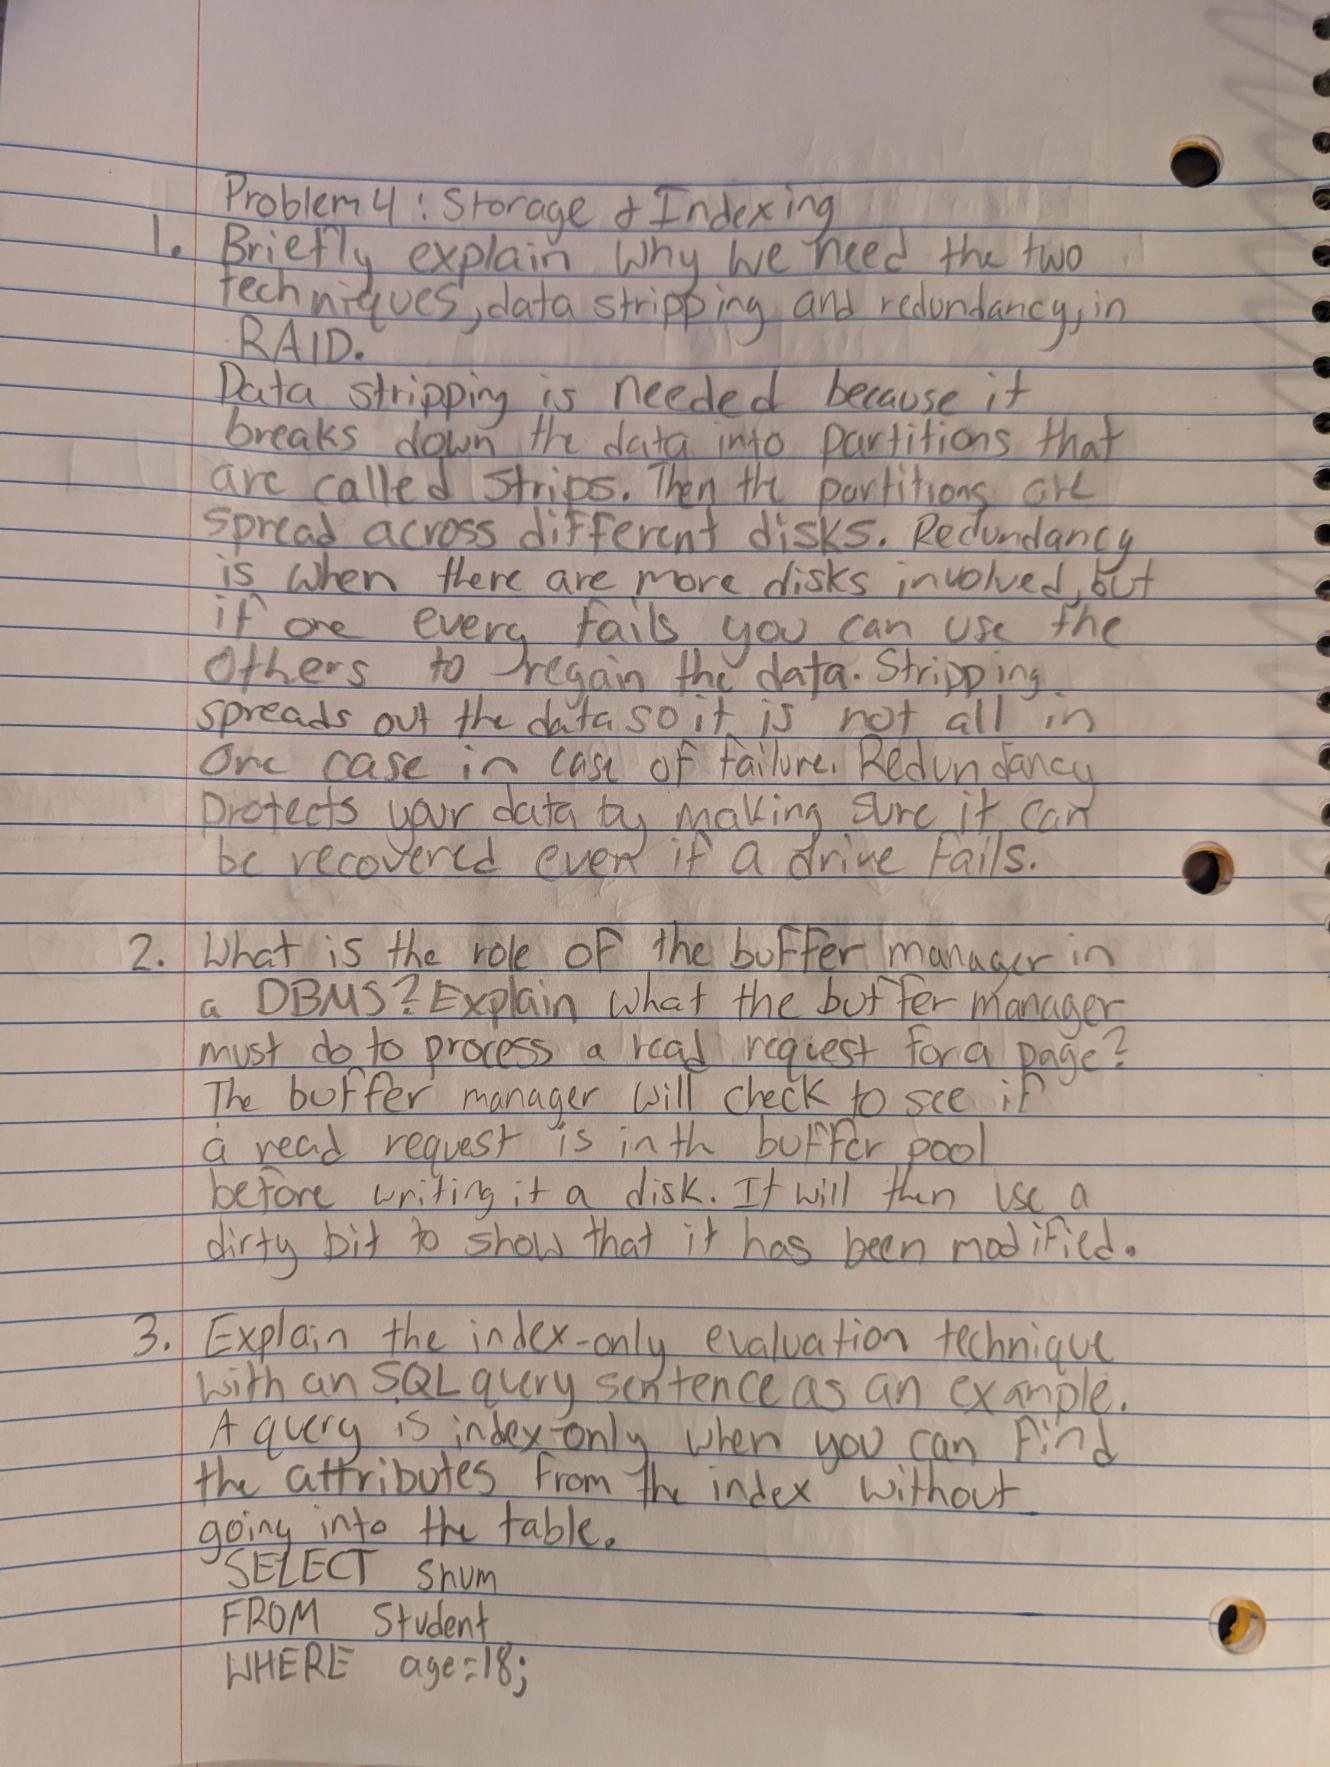 Problem 4: Storage & Indexing
1. Briefly explain why we need the two
techniques, data stripping and redundancy, in
RAID.
Data stripping is needed because it
breaks down the data into partitions that
are called strips. Then the partitions are
spread across different disks. Redundancy
is when there are more disks involved, but
if one every fails you can use the
others to regain the data. Stripping
spreads out the data so it is not all in
one case in case of failure. Redundancy
protects your data by making sure it can
be recovered even if a drive fails.
2. What is the role of the buffer manager in
a DBMS? Explain what the buffer manager
must do to process a read request for a page?
The buffer manager will check to see if
a read request is in th buffer pool
before writing it a disk. It will then use a
dirty bit to show that it has been modified.
3. Explain the index-only evaluation technique
with an SQL query sentence as an example.
A query is index-only when you can find
the attributes from the index without
going into the table.
SELECT snum
FROM Student
WHERE age=18;